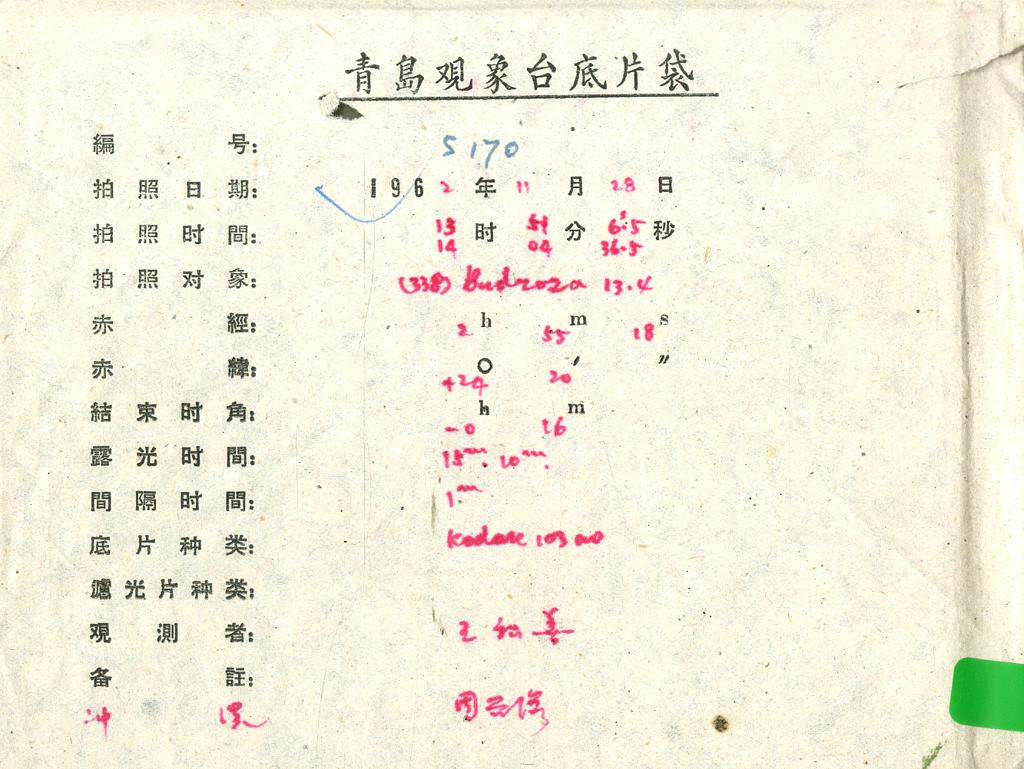 青島观象台底片袋
編号: S 170
拍照日期: 1962年11月28日
拍照时間: 13时51分6.5秒
14 04 36.5
拍照对象: (338) Budroza 13.4
赤經: 2h 55m 18s
赤緯: +24° 20′ ″
結束时角: -0h 16m
露光时間: 15m. 10m.
間隔时間: 1m
底片种类: Kodak 103 aO
濾光片种类:
观測者: 王
备註:
冲洗 周